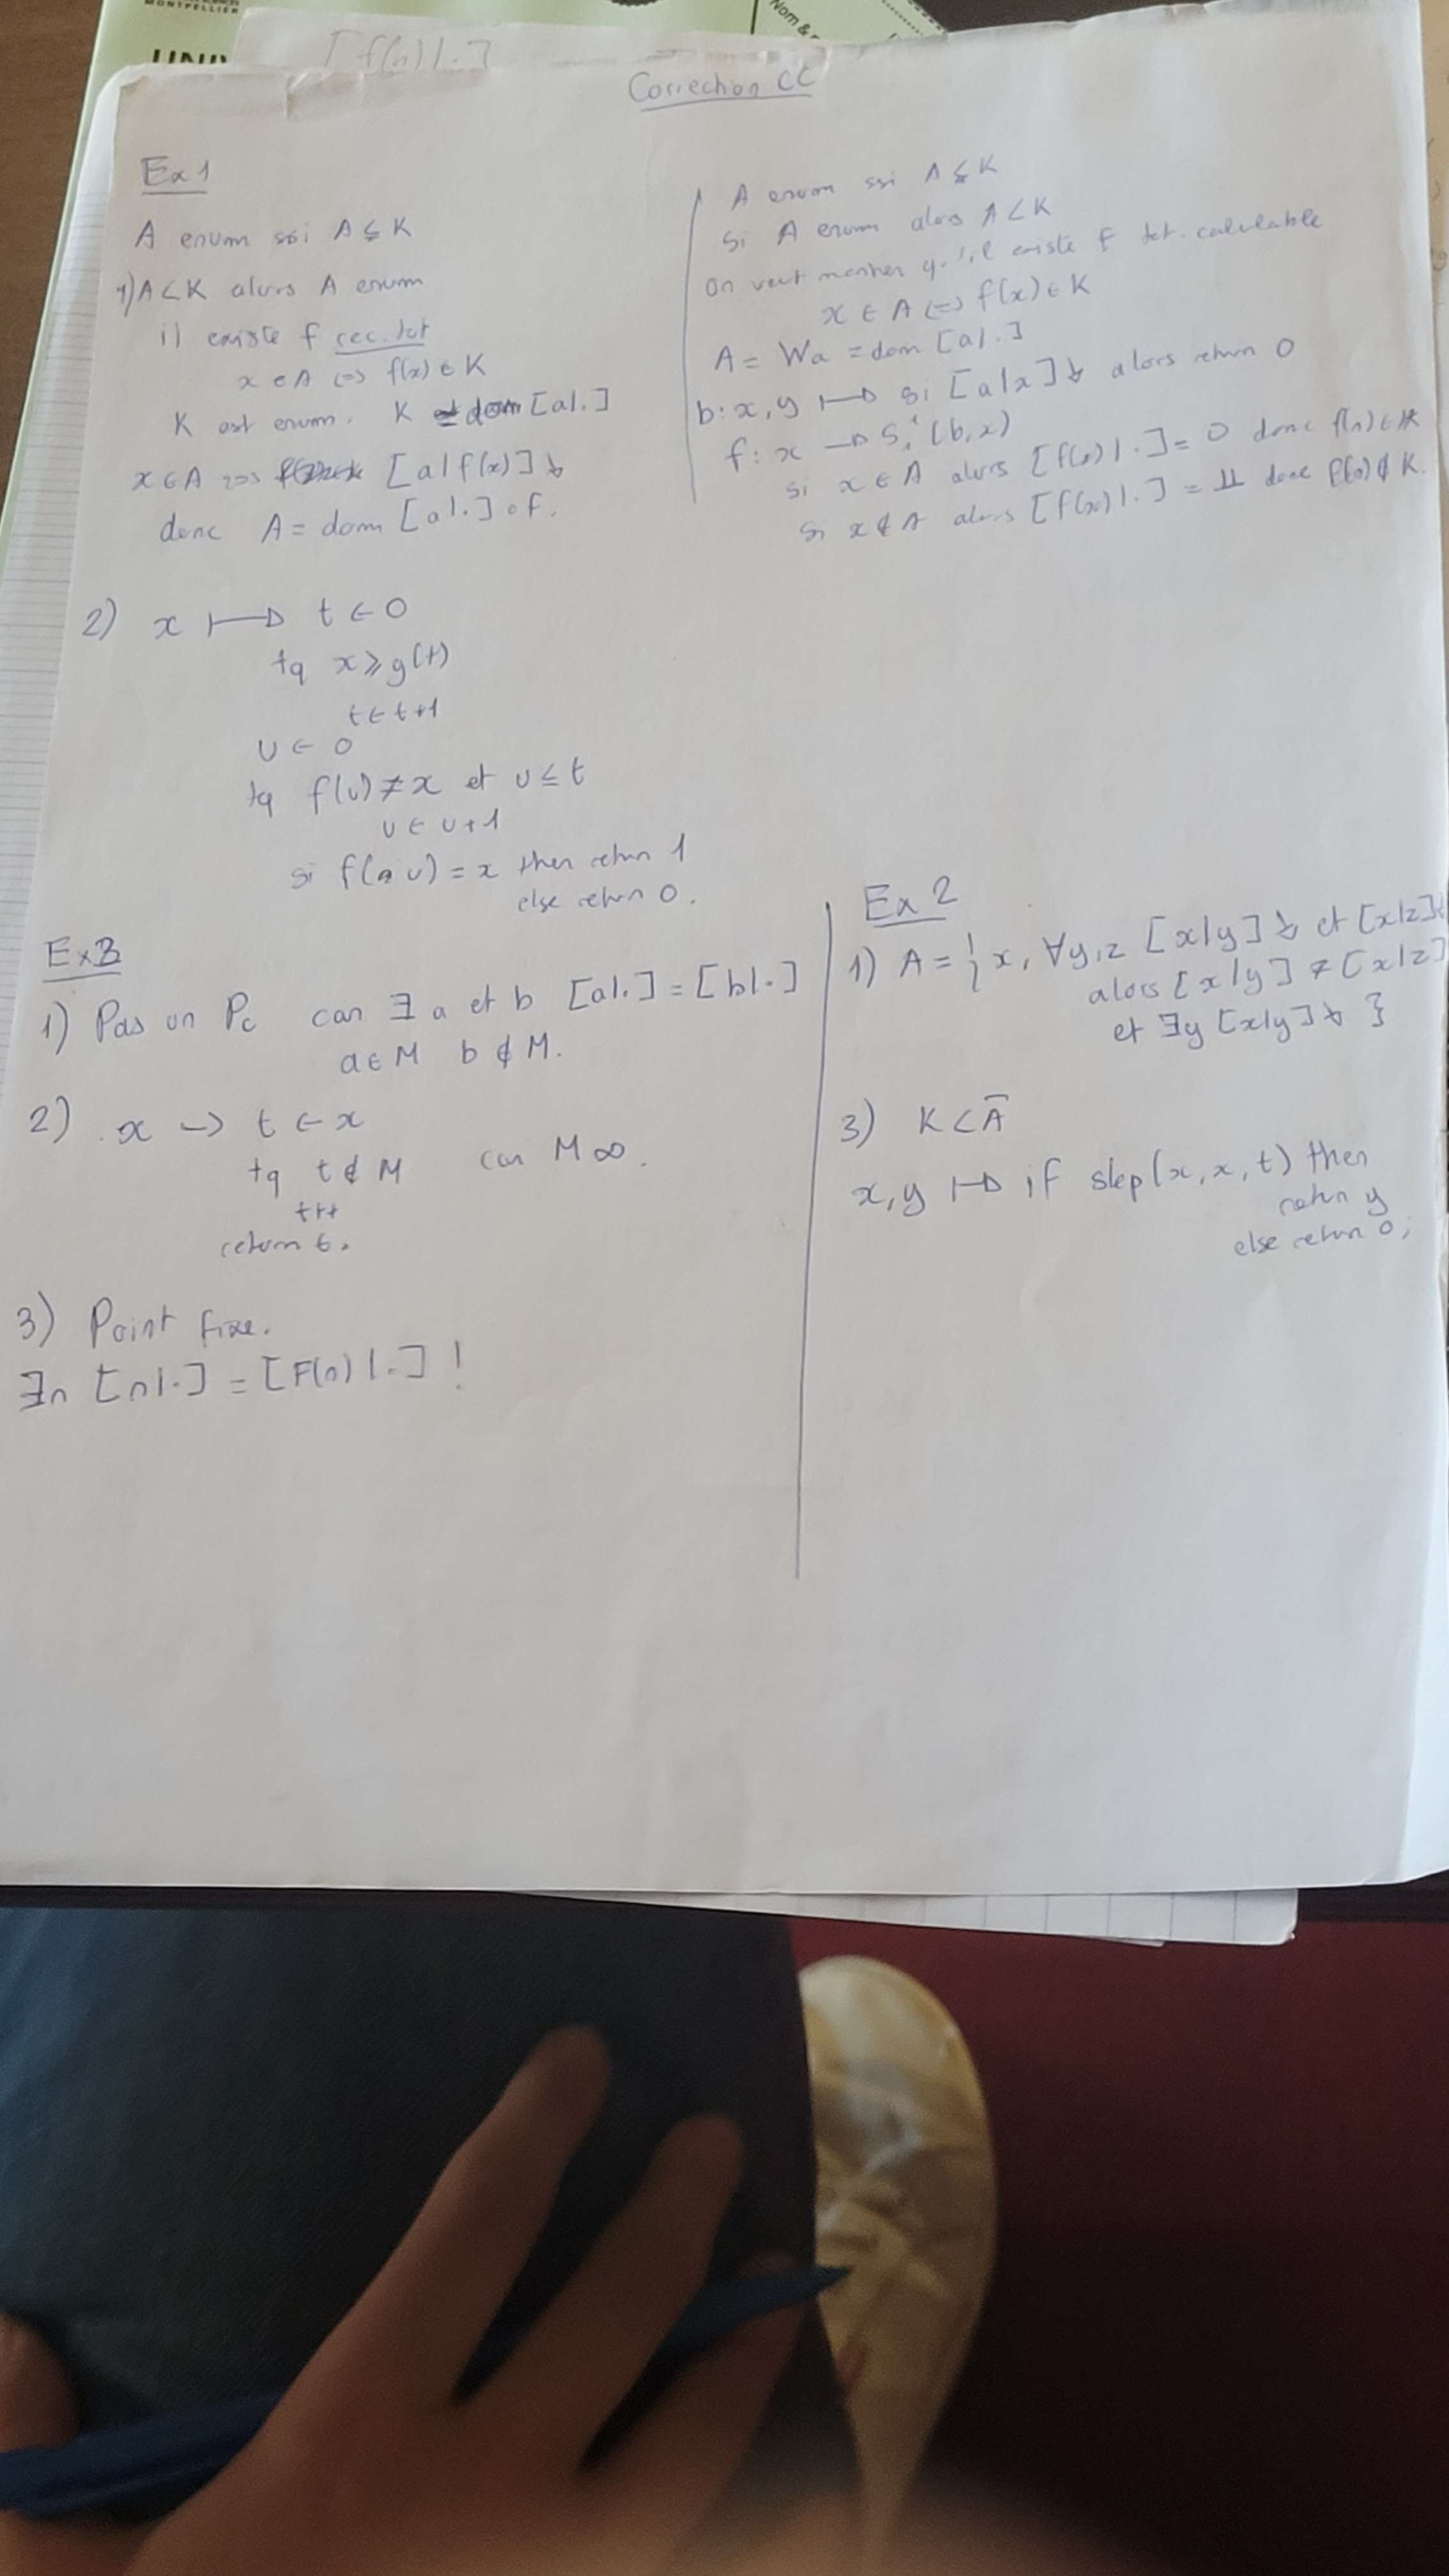 MONTPELLIER
UNIV
Nom &
[f(n)|.]
Correction CC
Ex 1
A enum ssi A ≤ K
1) A < K alors A enum
il existe f rec. tot
x ∈ A ⇔ f(x) ∈ K
K est enum. K = dom [a|.]
x ∈ A ⇔ [a|f(x)]↓
donc A = dom [a|.] o f.
A enum ssi A ≤ K
Si A enum alors A < K
On veut montrer q. 'il existe f tot. calculable
x ∈ A ⇔ f(x) ∈ K
A = Wa = dom [a|.]
b: x,y ↦ si [a|x]↓ alors return 0
f: x → S¹₁ (b,x)
si x ∈ A alors [f(x)|.] = 0 donc f(n) ∈ K
si x ∉ A alors [f(x)|.] = ⊥⊥ donc f(n) ∉ K.
2) x ↦ t ← 0
tq x ≥ g(t)
t ← t+1
U ← 0
tq f(u) ≠ x et u ≤ t
u ← u+1
si f(u) = x then return 1
else return 0.
Ex 3
1) Pas un Pc car ∃ a et b [a|.] = [b|.]
a ∈ M b ∉ M.
2) x → t ← x
tq t ∉ M car M ∞.
t++
return t.
3) Point fixe.
∃n [n|.] = [F(n)|.] !
Ex 2
1) A = { x, ∀y,z [x|y]↓ et [x|z]↓
alors [x|y] ≠ [x|z]
et ∃y [x|y]↓ }
3) K < A̅
x,y ↦ if step(x,x,t) then
return y
else return 0;